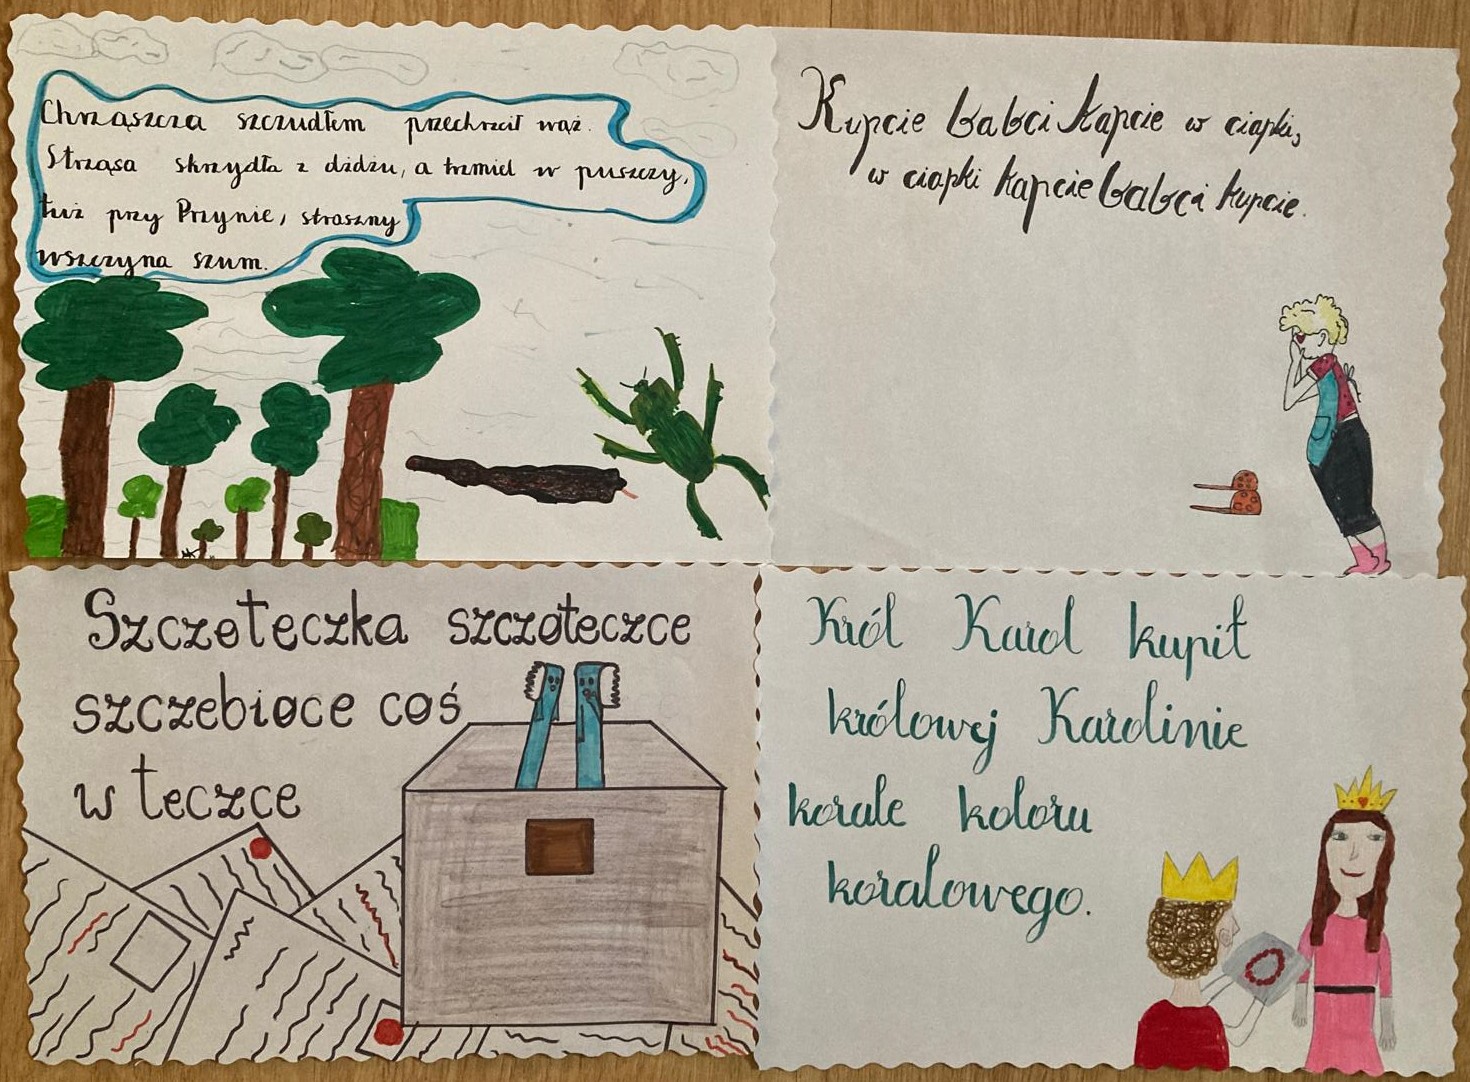 Chrząszcza szczudłem przechrzcił wąż.
Strząsa skrzydła z dżdżu, a trzmiel w puszczy,
tuż przy Pszynie, straszny
wszczyna szum.
Kupcie babci kapcie w ciapki,
w ciapki kapcie babci kupcie.
Szczoteczka szczoteczce
szczebiocze coś
w teczce
Król Karol kupił
królowej Karolinie
korale koloru
koralowego.